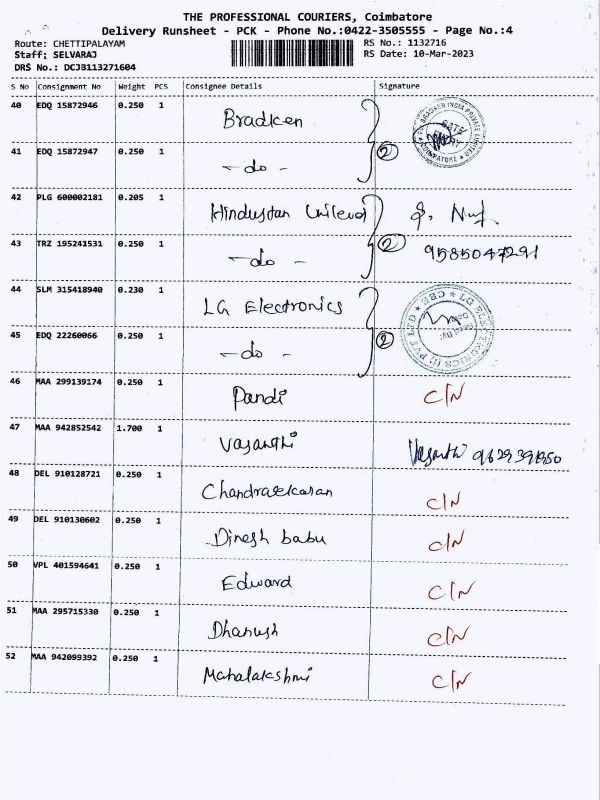 THE PROFESSIONAL COURIERS, Coimbatore
Delivery Runsheet - PCK - Phone No.:0422-3505555 - Page No.:4
Route: CHETTIPALAYAM RS No.: 1132716
Staff: SELVARAJ RS Date: 10-Mar-2023
DRS No.: DCJB113271604
S No Consignment No Weight PCS Consignee Details Signature
40 EDQ 15872946 0.250 1 Bradken
BRADKEN INDIA PRIVATE LIMITED COIMBATORE
41 EDQ 15872947 0.250 1 - do - 2
42 PLG 600002181 0.205 1 Hindustan Unilever
43 TRZ 195241531 0.250 1 - do - 2 9585047291
44 SLM 315418940 0.230 1 LG Electronics
LG ELECTRONICS (I) PVT LTD ★ CBE ★
45 EDQ 22260066 0.250 1 - do - 2
46 MAA 299139174 0.250 1 Pandi C/N
47 MAA 942852542 1.700 1 Vasanthi Vasanthi 9629391950
48 DEL 910128721 0.250 1 Chandrasekaran C/N
49 DEL 910130602 0.250 1 Dinesh babu C/N
50 VPL 401594641 0.250 1 Edward C/N
51 MAA 295715330 0.250 1 Dhanush C/N
52 MAA 942099392 0.250 1 Mahalakshmi C/N